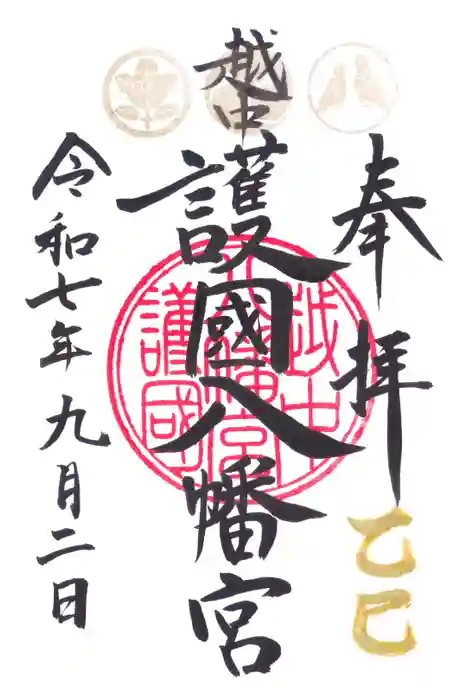 奉拝
乙巳
越中
護國八幡宮
越中
八幡宮
護國
令和七年九月二日